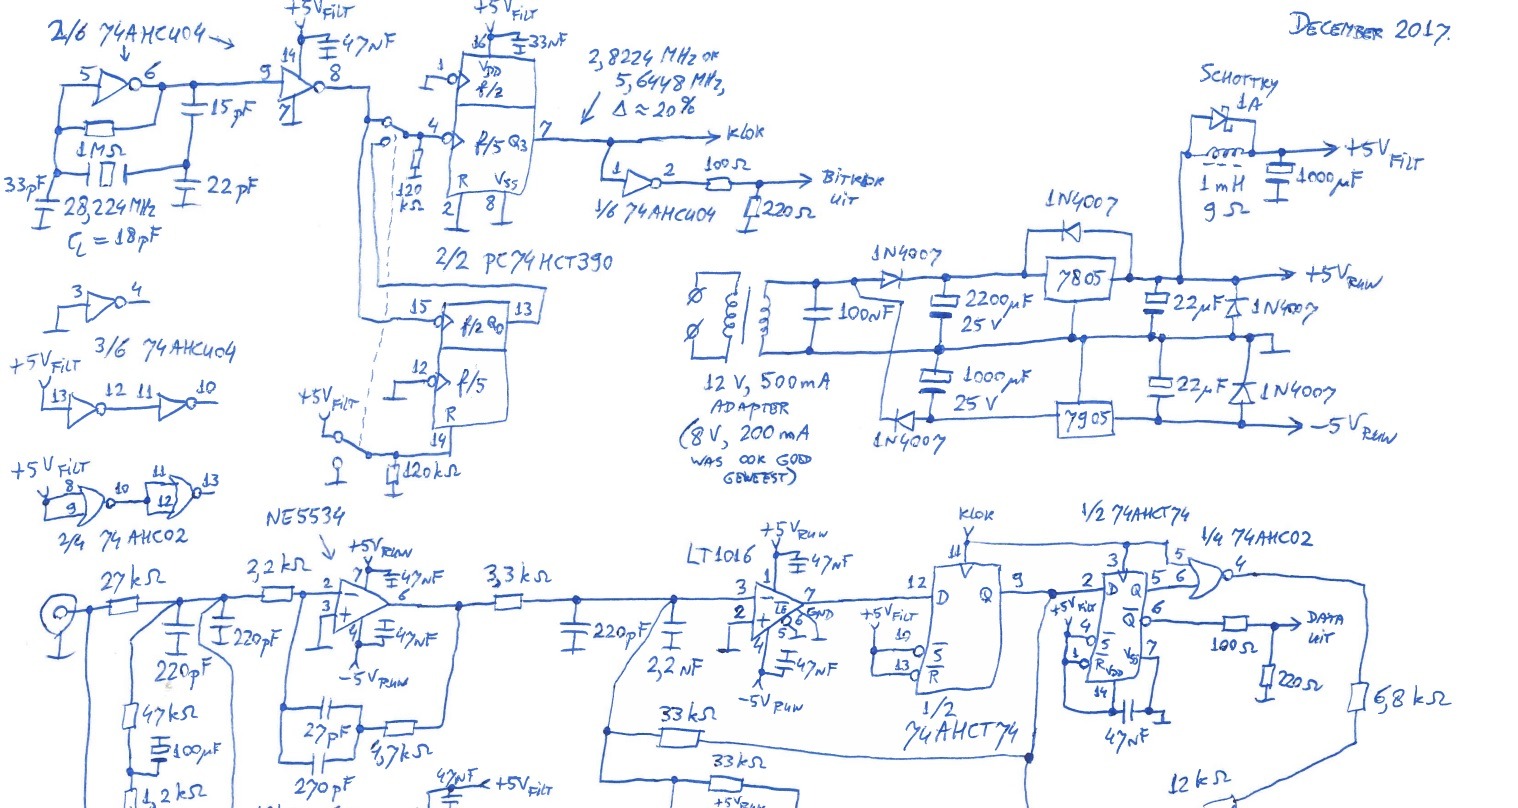 DECEMBER 2017.
2/6 74AHCU04
+5V FILT
47nF
14
5
6
9
8
7
15pF
1MΩ
33pF
22pF
28,224MHz
CL = 18pF
+5V FILT
16
33nF
1
VDD
f/2
4
f/5 Q3
7
R
VSS
2
8
120
kΩ
2,8224 MHz OR
5,6448 MHz,
Δ ≈ 20%
KLOK
1
2
100Ω
BITKLOK
UIT
1/6 74AHCU04
220Ω
2/2 PC74HCT390
15
f/2 Q0
13
12
f/5
R
14
+5V FILT
120kΩ
3
4
3/6 74AHCU04
+5V FILT
13
12
11
10
+5V FILT
8
9
10
11
12
13
2/4 74AHC02
SCHOTTKY
1A
+5V FILT
1 mH
9 Ω
1000µF
1N4007
1N4007
7805
+5V RUW
100nF
2200µF
25 V
22µF
1N4007
12 V, 500mA
ADAPTER
(8V, 200 mA
WAS OOK GOED
GEWEEST)
1000µF
25 V
22µF
1N4007
1N4007
7905
-5V RUW
NE5534
+5V RUW
27kΩ
2,2kΩ
2
7
47nF
3
6
4
47nF
-5V RUW
220pF
220pF
47kΩ
100µF
1,2kΩ
27pF
4,7kΩ
270pF
47nF
+5V FILT
3,3kΩ
220pF
2,2nF
LT1016
+5V RUW
1
47nF
3
2
7
LE
GND
6
5
4
47nF
-5V RUW
33kΩ
33kΩ
+5V RUW
KLOK
11
12
D
Q
9
+5V FILT
10
S
13
R
1/2
74AHCT74
1/2 74AHCT74
3
2
D
Q
5
+5V FILT
Q
6
4
S
1
R
VDD
VSS
7
14
47nF
1/4 74AHC02
5
6
4
100Ω
DATA
UIT
220Ω
6,8kΩ
12kΩ